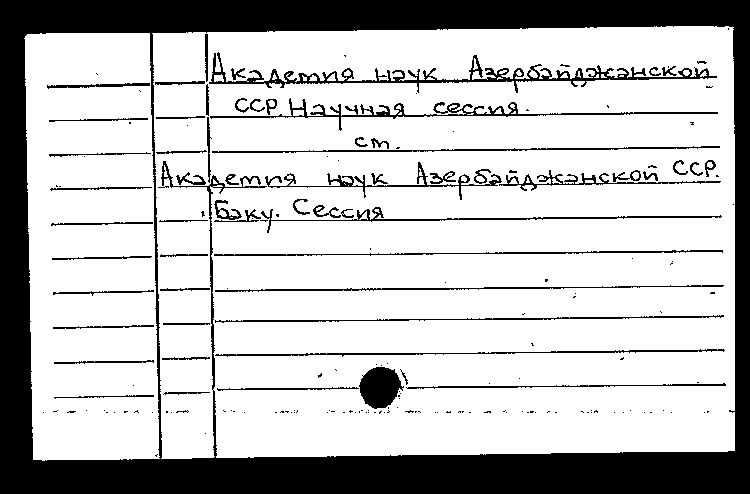 Академия наук Азербайджанской
ССР. Научная сессия.
см.
Академия наук Азербайджанской ССР.
Баку. Сессия